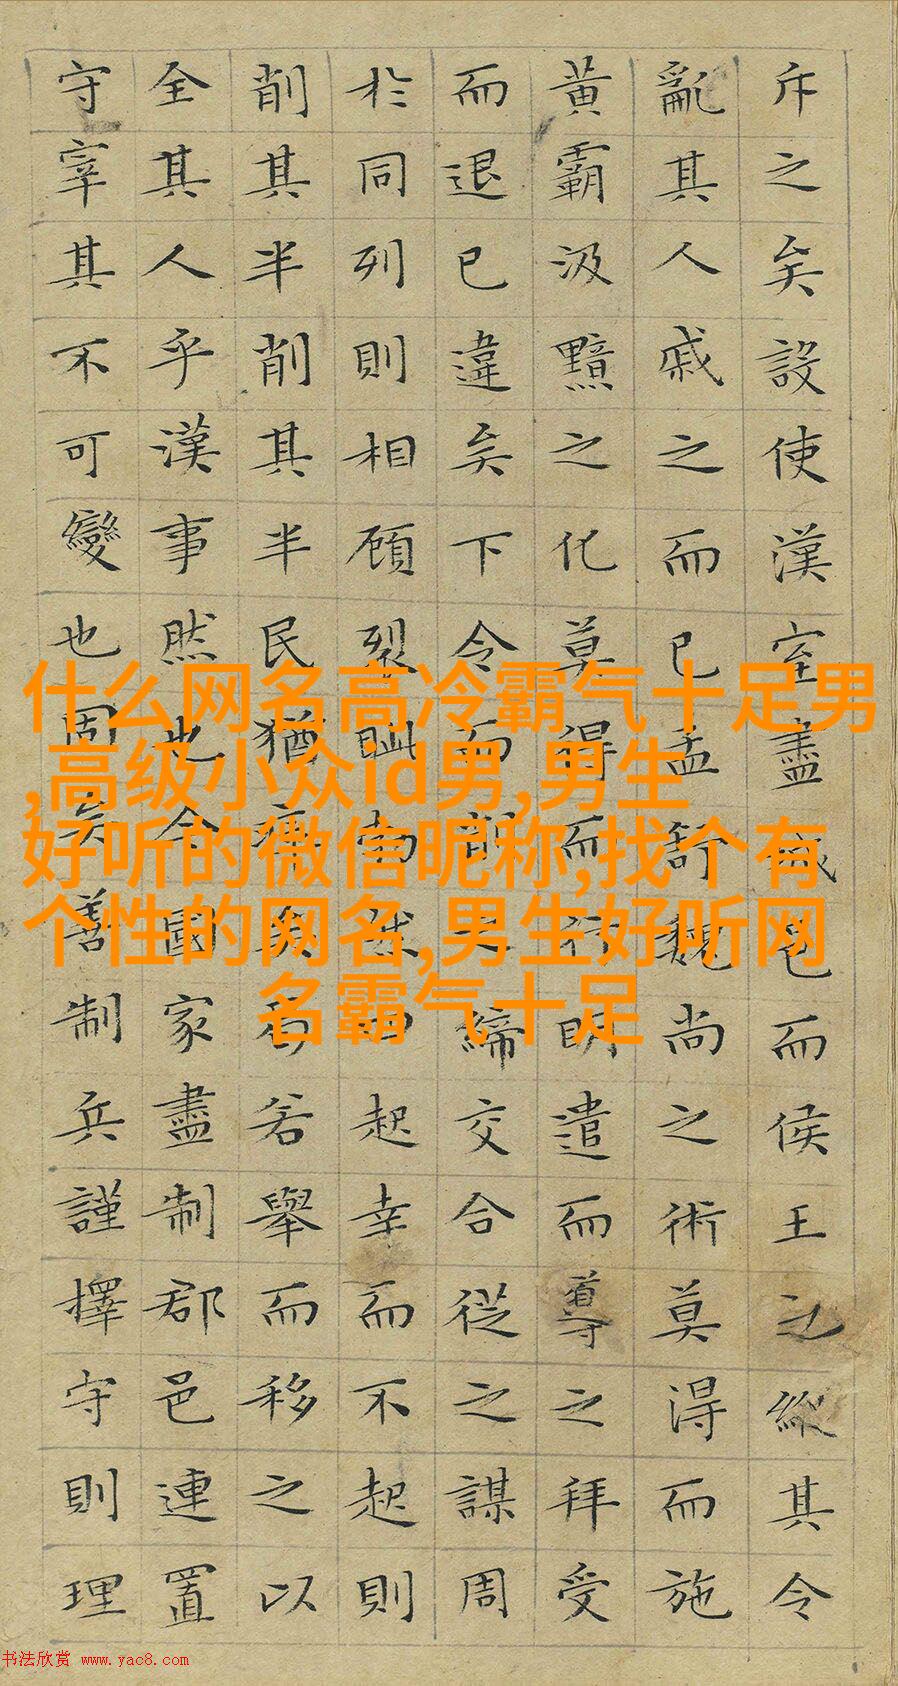 斥之矣設使漢室盡城邑而侯王之縱其令
亂其人戚之而已孟舒魏尚之術莫得而施
黃霸汲黯之化莫得而行明遣而導之拜受
而退已違矣下令而削之締交合從之謀周
於同列則相顧裂眦勃然而起幸而不起則
削其半削其半民猶瘁矣曷若舉而移之以
全其人乎漢事然也今國家盡制郡邑連置
守宰其不可變也固矣善制兵謹擇守則理
什么网名高冷霸气十足男
,高级小众id男,男生
好听的微信昵称,找个有
个性的网名,男生好听网
名霸气十足
书法欣赏 www.yac8.com